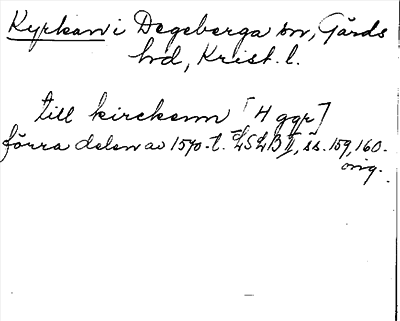 Kyrkan i Degeberga sn, Gärds
hd, Krist. l.
till kirckenn [4 ggr]
förra delen av 1570-t. LSLB II, ss. 159, 160.
orig.